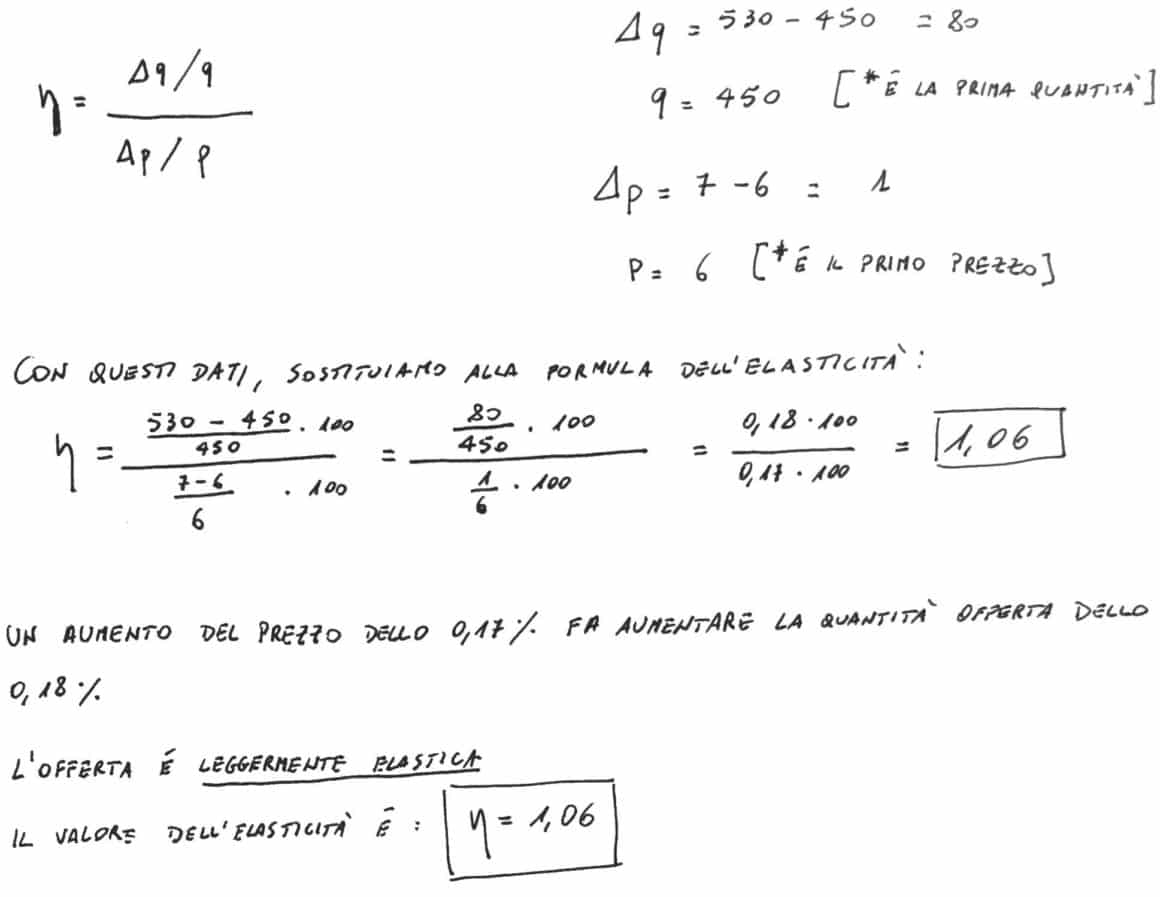 η = Δq/q / Δp/p
Δq = 530 - 450 = 80
q = 450 [*È LA PRIMA QUANTITÀ]
Δp = 7 - 6 = 1
P = 6 [*È IL PRIMO PREZZO]
CON QUESTI DATI, SOSTITUIAMO ALLA FORMULA DELL'ELASTICITÀ:
η = (530 - 450)/450 · 100 / (7-6)/6 · 100 = 80/450 · 100 / 1/6 · 100 = 0,18 · 100 / 0,17 · 100 = 1,06
UN AUMENTO DEL PREZZO DELLO 0,17 % FA AUMENTARE LA QUANTITÀ OFFERTA DELLO
0,18 %
L'OFFERTA È LEGGERMENTE ELASTICA
IL VALORE DELL'ELASTICITÀ È : η = 1,06